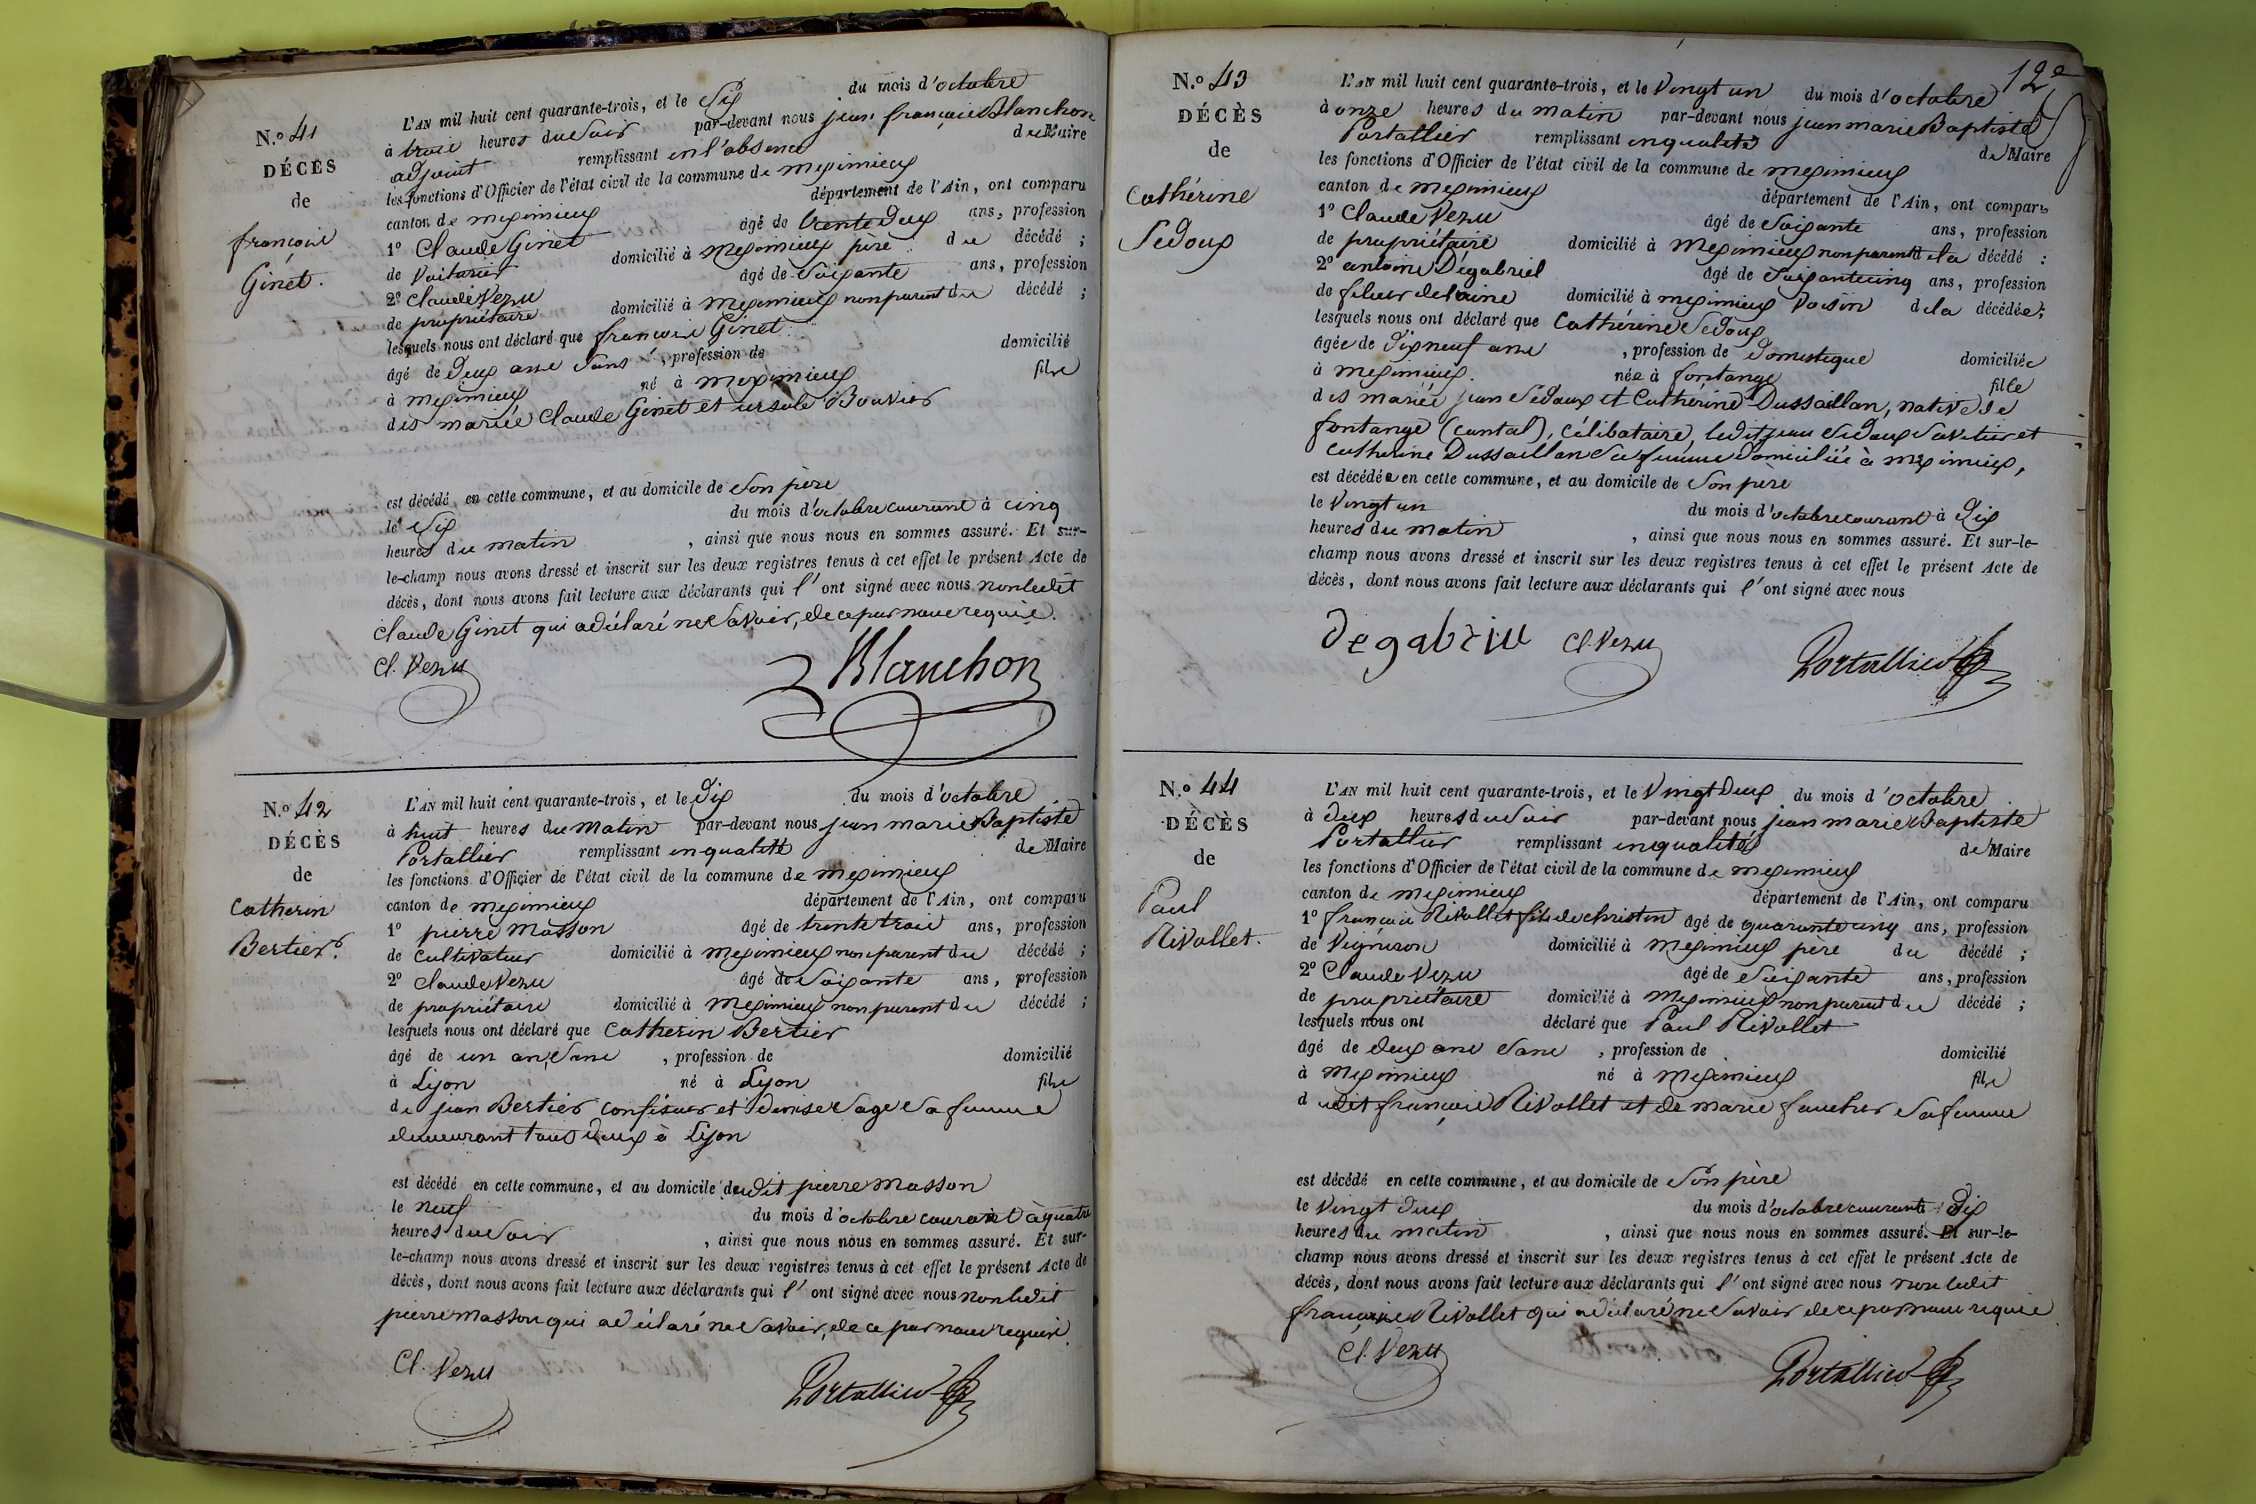 N.o 41
DÉCÈS
de
françois
Ginet.
L'AN mil huit cent quarante-trois, et le Six du mois d'octobre
à trois heures du Soir par-devant nous jean françois Blanchon
adjoint remplissant en l'absence du Maire
les fonctions d'Officier de l'état civil de la commune de meximieux
canton de meximieux département de l'Ain, ont comparu
1o Claude Ginet âgé de trente deux ans, profession
de Voiturier domicilié à meximieux père du décédé ;
2o Claude Vezu âgé de Soixante ans, profession
de propriétaire domicilié à meximieux non parent du décédé ;
lesquels nous ont déclaré que françois Ginet
âgé de deux ans Sans , profession de domicilié
à meximieux né à meximieux fils
des mariés Claude Ginet et ursule Bouvier
est décédé en cette commune, et au domicile de Son père
le Six du mois d'octobre courant à cinq
heures du matin , ainsi que nous nous en sommes assuré. Et sur-
le-champ nous avons dressé et inscrit sur les deux registres tenus à cet effet le présent Acte de
décès, dont nous avons fait lecture aux déclarants qui l'ont signé avec nous non ledit
Claude Ginet qui a déclaré ne Savoir, de ce par nous requis.
Cl. Vezu Blanchon
N.o 42
DÉCÈS
de
Catherin
Bertier.
L'AN mil huit cent quarante-trois, et le dix du mois d'octobre
à huit heures du matin par-devant nous jean marie Baptiste
Portallier remplissant en qualité de Maire
les fonctions d'Officier de l'état civil de la commune de meximieux
canton de meximieux département de l'Ain, ont comparu
1o pierre Masson âgé de trente trois ans, profession
de Cultivateur domicilié à meximieux non parent du décédé ;
2o Claude Vezu âgé de Soixante ans, profession
de propriétaire domicilié à meximieux non parent du décédé ;
lesquels nous ont déclaré que Catherin Bertier
âgé de un an, Sans , profession de domicilié
à Lyon né à Lyon fils
de jean Bertier confiseur et denise Sage Sa femme
demeurant tous deux à Lyon
est décédé en cette commune, et au domicile dudit pierre Masson
le neuf du mois d'octobre courant à quatre
heures du Soir , ainsi que nous nous en sommes assuré. Et sur-
le-champ nous avons dressé et inscrit sur les deux registres tenus à cet effet le présent Acte de
décès, dont nous avons fait lecture aux déclarants qui l'ont signé avec nous non ledit
pierre Masson qui a déclaré ne Savoir, de ce par nous requis.
Cl. Vezu Portallier
12e
N.o 43
DÉCÈS
de
Cathérine
Sedoux
L'AN mil huit cent quarante-trois, et le Vingt un du mois d'octobre
à onze heures du matin par-devant nous jean marie Baptiste
Portallier remplissant en qualité de Maire
les fonctions d'Officier de l'état civil de la commune de meximieux
canton de meximieux département de l'Ain, ont comparu
1o Claude Vezu âgé de Soixante ans, profession
de propriétaire domicilié à Meximieux non parent de la décédé ;
2o antoine Dégabriel âgé de Soixante cinq ans, profession
de fileur de laine domicilié à meximieux Voisin de la décédée ;
lesquels nous ont déclaré que Cathérine Sedoux
âgée de dix neuf ans , profession de domestique domiciliée
à meximieux. née à fontange fille
des mariés jean Sedoux et Cathérine Dussaillan, native de
fontange (cantal), célibataire, ledit jean Sedoux Savetier et
Catherine Dussaillan Sa femme domiciliés à meximieux,
est décédée en cette commune, et au domicile de Son père
le Vingt un du mois d'octobre courant à dix
heures du matin , ainsi que nous nous en sommes assuré. Et sur-le-
champ nous avons dressé et inscrit sur les deux registres tenus à cet effet le présent Acte de
décès, dont nous avons fait lecture aux déclarants qui l'ont signé avec nous
degabriel Cl. Vezu Portallier
N.o 44
DÉCÈS
de
Paul
Rivollet.
L'AN mil huit cent quarante-trois, et le Vingt deux du mois d'octobre
à deux heures du Soir par-devant nous jean marie Baptiste
Portallier remplissant en qualité de Maire
les fonctions d'Officier de l'état civil de la commune de meximieux
canton de meximieux département de l'Ain, ont comparu
1o françois Rivollet fils de christin âgé de quarante cinq ans, profession
de Vigneron domicilié à Meximieux père du décédé ;
2o Claude Vezu âgé de Soixante ans, profession
de propriétaire domicilié à Meximieux non parent du décédé ;
lesquels nous ont déclaré que Paul Rivollet
âgé de deux ans Sans , profession de domicilié
à Meximieux né à Meximieux fils
dudit françois Rivollet et de marie Sa femme
est décédé en cette commune, et au domicile de Son père
le Vingt deux du mois d'octobre courant à dix
heures du matin , ainsi que nous nous en sommes assuré. Et sur-le-
champ nous avons dressé et inscrit sur les deux registres tenus à cet effet le présent Acte de
décès, dont nous avons fait lecture aux déclarants qui l'ont signé avec nous non ledit
françois Rivollet qui a déclaré ne Savoir de ce par nous requis
Cl. Vezu Portallier